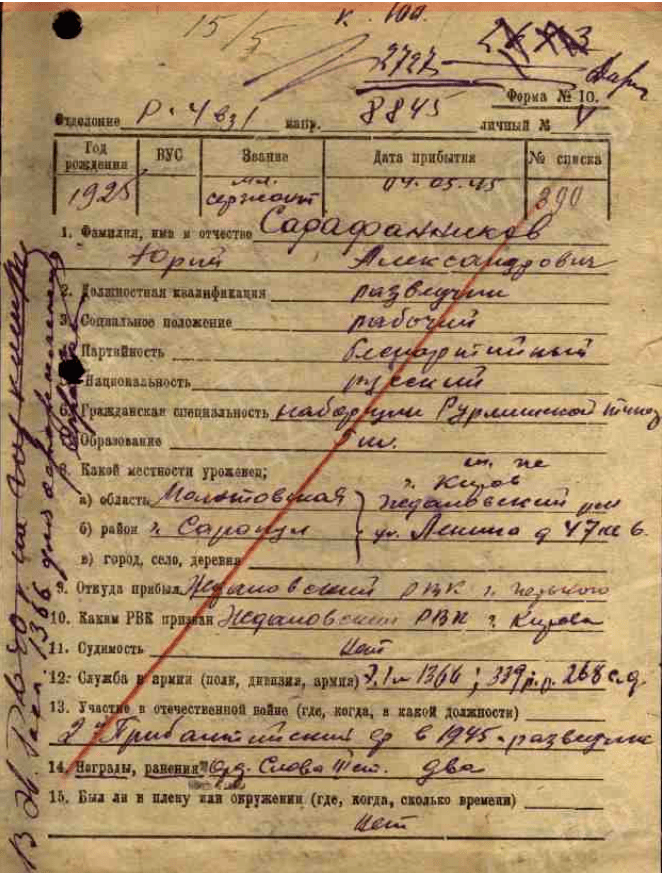 15/5
2727
Форма № 10.
Отделение Р. 4 взв напр. 8845 личный №
Год рождения ВУС Звание Дата прибытия № списка
1925 мл. сержант 04.05.45 390
1. Фамилия, имя и отчество Сарафанников
Юрий Александрович
2. Должностная квалификация разведчик
3. Социальное положение рабочий
4. Партийность беспартийный
5. Национальность русский
6. Гражданская специальность наборщик
7. Образование 5 кл.
8. Какой местности уроженец;
г. Киров
а) область Молотовская Ждановский р-н
б) район г. Сарапул ул. Ленина д 47 кв 6.
в) город, село, деревня
9. Откуда прибыл Ждановский РВК г.
10. Каким РВК призван Ждановский РВК г. Кирова
11. Судимость Нет
12. Служба в армии (полк, дивизия, армия) 1366; 339 268 с.д.
13. Участие в отечественной войне (где, когда, в какой должности)
2й Прибалтийский фр в 1945 - разведчик
14. Награды, ранения Орд. Слава III ст. два
15. Был ли в плену или окружении (где, когда, сколько времени)
Нет